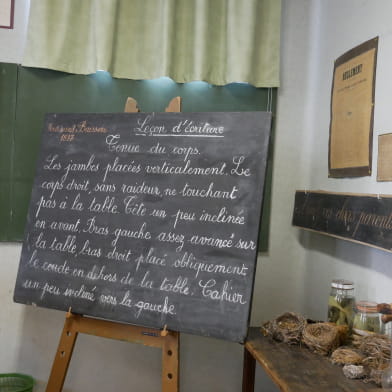 Ferdinand Buisson
1887
Leçon d'Écriture
Tenue du corps.
Les jambes placées verticalement. Le
corps droit, sans raideur, ne touchant
pas à la table. Tête un peu inclinée
en avant. Bras gauche assez avancé sur
la table, bras droit placé obliquement
le coude en dehors de la table. Cahier
un peu incliné vers la gauche.
RÈGLEMENT